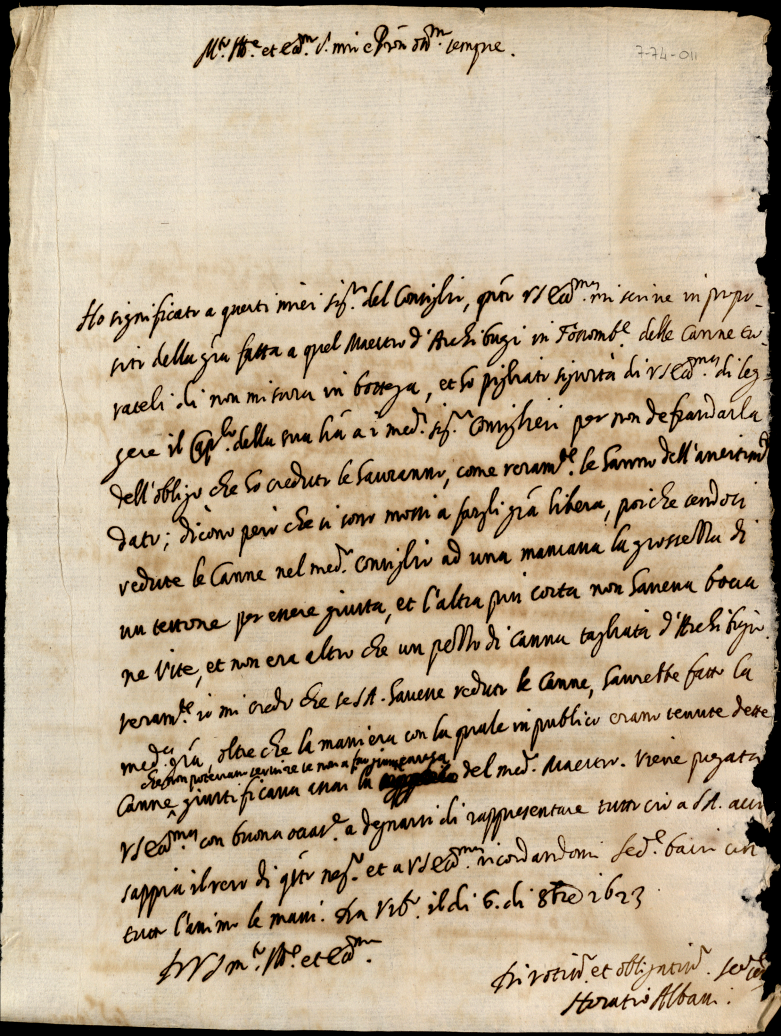 M.to Ill.re et Ecc.mo S. mio e Pron oss.mo sempre.
7-74-011
Ho significato a questi miei sig.ri del Consiglio, q.to VS Ecc.ma mi scrive in propo-
sito della gra fatta a quel Maestro d'Archibugi in Fossomb.e delle Canne tro-
vateli di non misura in bottega, et ho pigliato sicurtà di VS Ecc.ma di leg-
gere il Cap.lo della sua lra a i med.i sig.ri Consiglieri per non defraudarla
dell'obligo che ho creduto le hauranno, come veram.te le hanno dell'avertim.to
dato; dicono però che si sono mossi a fargli gra libera, poiche sendosi
vedute le Canne nel med.o Consiglio ad una mancava la grossezza di
un testone per essere giusta, et l'altra più corta non haveva bocca
ne vite, et non era altro che un pezzo di canna tagliata d'Archibugio
veram.te io mi credo che se SA. havesse veduto le Canne, haurebbe fatto la
med.a gra, oltre che la maniera con la quale in publico erano tenute dette
che non potevano servire se non a
Canne giustificava assai la del med.o Maestro. Viene pregata
VS Ecc.ma con buona occas.e a degnarsi di rappresentare tutto ciò a SA. acciò
sappia il vero di q.to neg.o et a VS Ecc.ma ricordandomi bacio con
tutto l'animo le mani. Da Urb.o il dì 6. di 8bre 1623
Di VS m.to Ill.re et Ecc.ma
Divotiss.o et obligatiss.o
Horatio Albani.